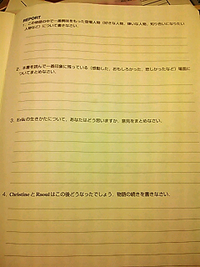 REPORT
1. この物語の中で一番興味をもった登場人物（好きな人物、嫌いな人物、知り合いになりたい
人物など）について書きなさい。
2. 本書を読んで一番印象に残っている（感動した、おもしろかった、悲しかったなど）場面に
ついてまとめなさい。
3. Erikの生きかたについて、あなたはどう思いますか。意見をまとめなさい。
4. ChristineとRaoulはこの後どうなったでしょう。物語の続きを書きなさい。